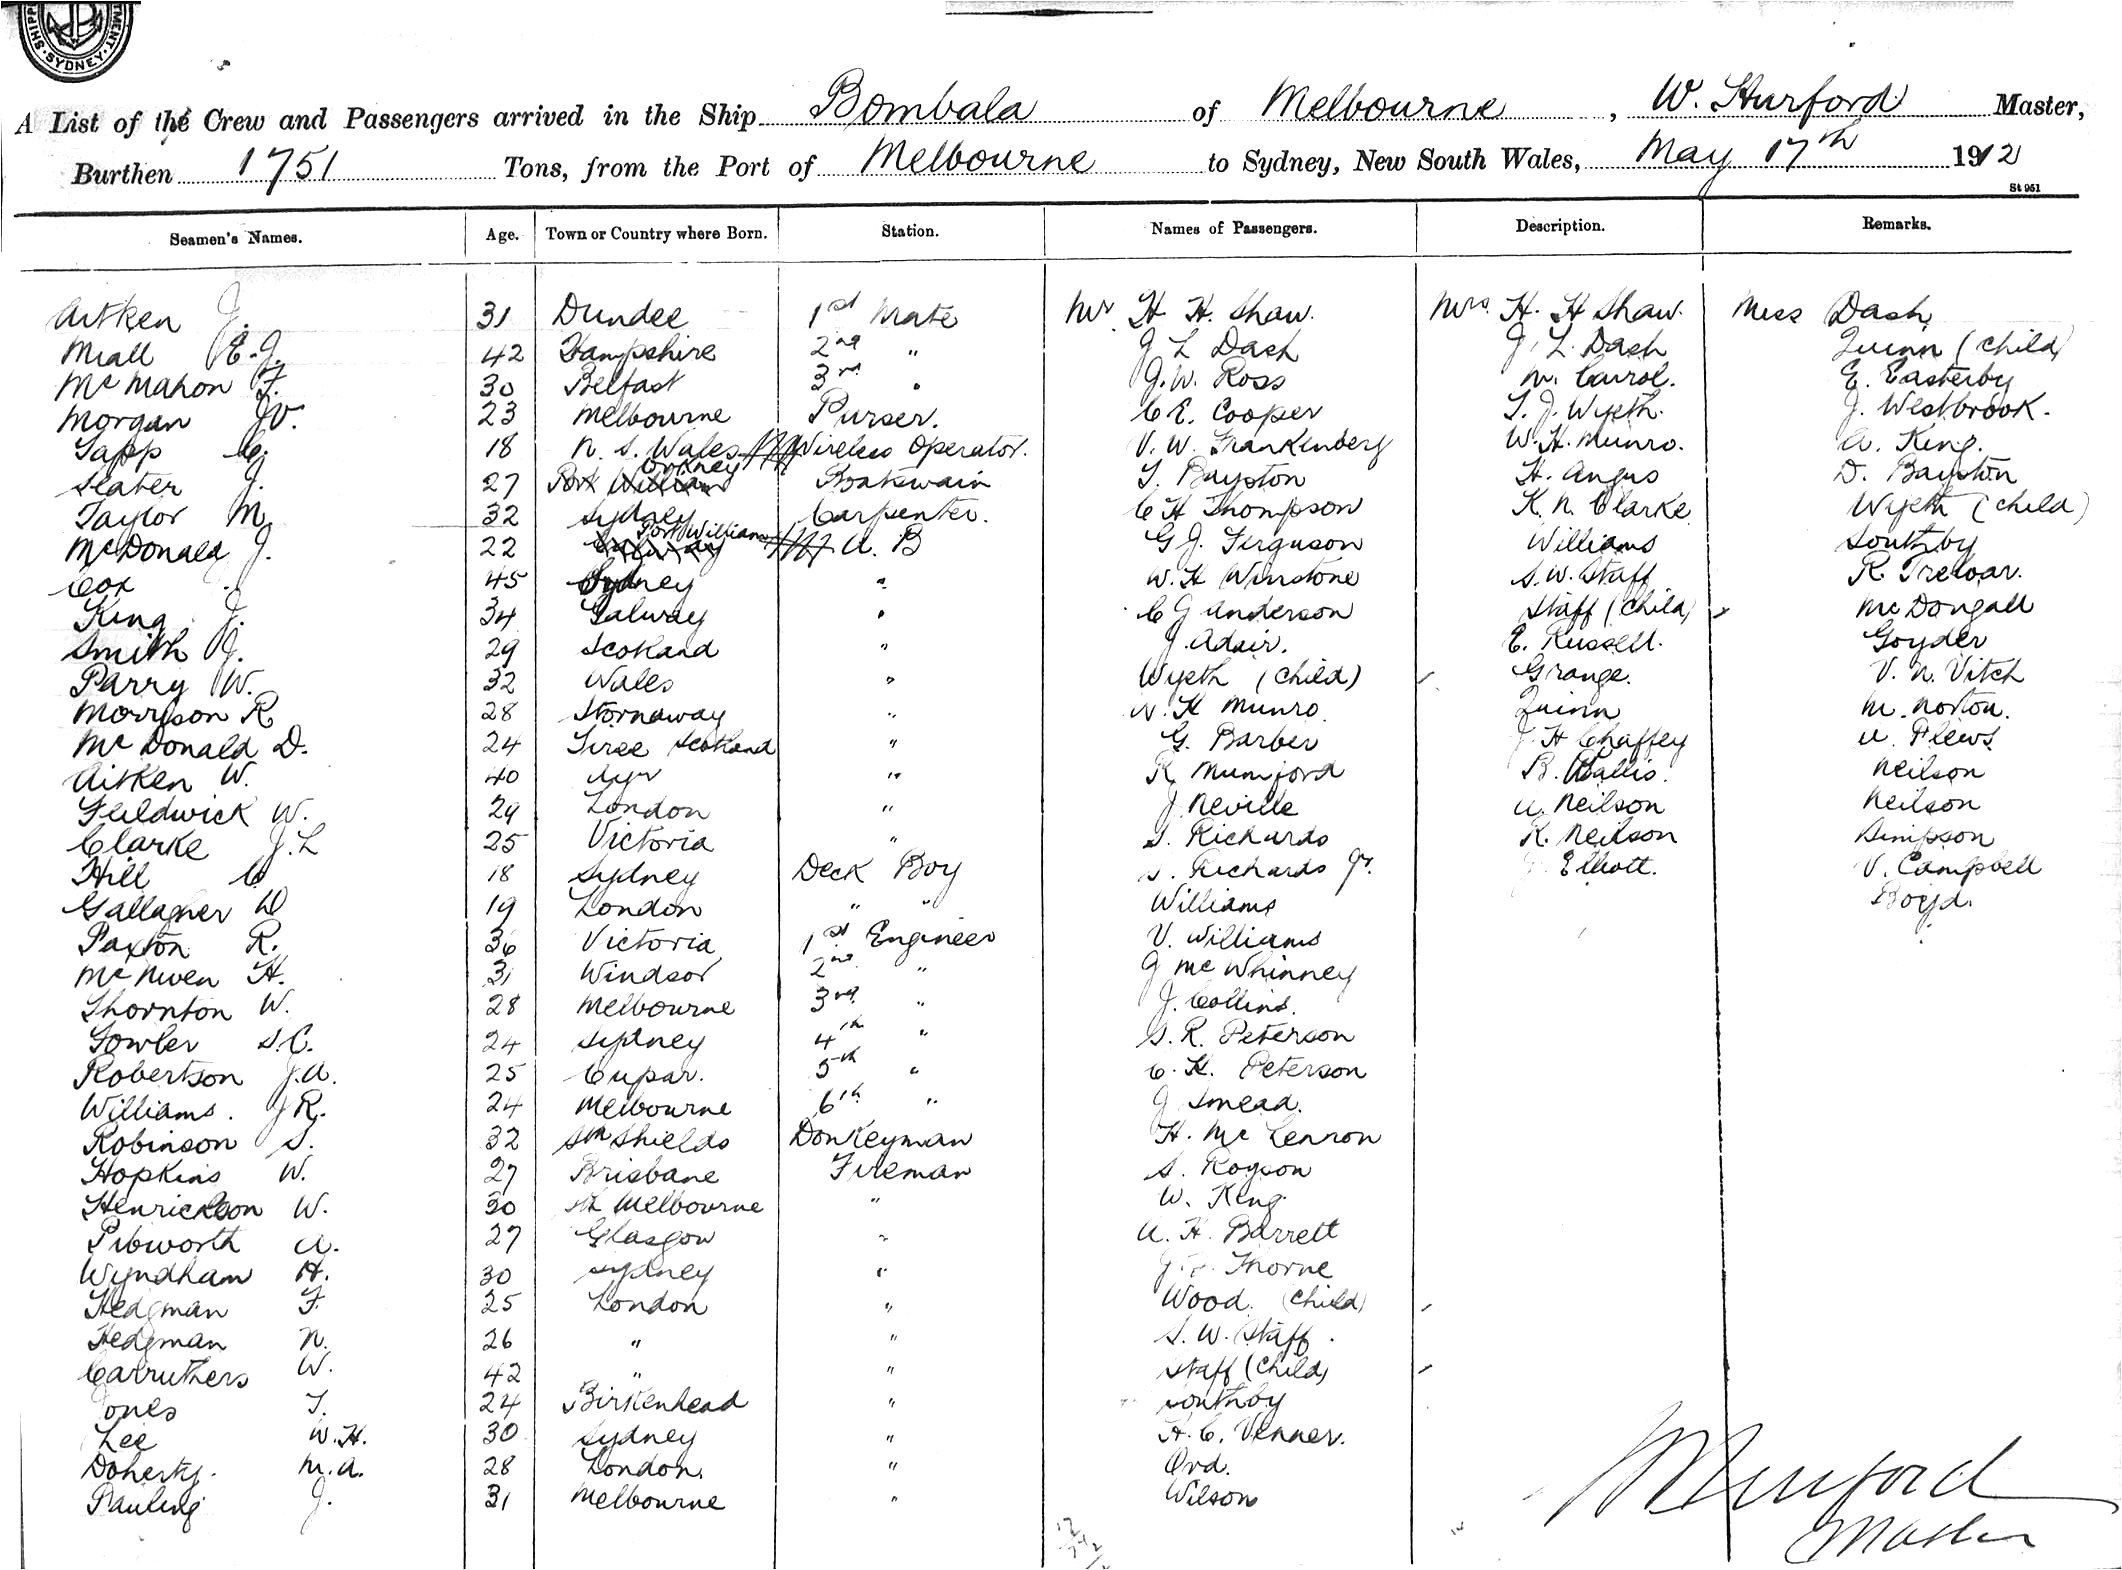 SHIPP TMENT. SYDNEY
A List of the Crew and Passengers arrived in the Ship Bombala of Melbourne, W. Hurford Master,
Burthen 1751 Tons, from the Port of Melbourne to Sydney, New South Wales, May 17th 1912
St 951
Seamen's Names. Age. Town or Country where Born. Station. Names of Passengers. Description. Remarks.
Aitken J. 31 Dundee 1st Mate Mr H. H. Shaw. Mrs. H. H Shaw. Miss Dash
Miall E. J. 42 Hampshire 2nd " J L Dash J. L. Dash Quinn (child)
McMahon F. 30 Belfast 3rd " J. W. Ross M. Carrol. E. Easterby
Morgan JV. 23 Melbourne Purser. C E. Cooper T. J. Wyeth. J. Westbrook.
Tapp C. 18 N. S. Wales Wireless Operator. V. W. Frankenberg W. H. Munro. A. King.
Slater J. 27 Port William Orkney Boatswain T. Bayston H. Angus D. Bayston
Taylor M. 32 Sydney Carpenter. C H Thompson K. N. Clarke Wyeth (child)
McDonald J. 22 Port William A. B G J. Ferguson Williams Southby
Cox 45 Sydney " W. H Winstone S. W. Staff R. Treloar.
King J. 34 Galway " C G Anderson Staff (Child) McDongall
Smith J. 29 Scotland " J. Adair. E. Russell. Goyder
Parry W. 32 Wales " Wyeth (Child) Grange. V. N. Vitch
Morrison R 28 Stornaway " H Munro Quinn M. Norton.
McDonald D. 24 Tiree Scotland " G. Barber J H Chaffey A. Flews
Aitken W. 40 Ayr " R Mumford B. Wallis. Neilson
Fieldwick W. 29 London " J Neville A. Neilson Neilson
Clarke J. L 25 Victoria " S. Richards R. Neilson Simpson
Hill C 18 Sydney Deck Boy S. Richards Jr. Elliott. V. Campbell
Gallagher D 19 London " " Williams Boyd.
Paxton R. 36 Victoria 1st Engineer V. Williams
McNiven H. 31 Windsor 2nd " J McWhinney
Thornton W. 28 Melbourne 3rd " J. Collins.
Fowler S. C. 24 Sydney 4th " S. R. Peterson
Robertson J. A. 25 Cupar. 5th " C. H. Peterson
Williams. J R. 24 Melbourne 6th " J Smead.
Robinson S. 32 Sth Shields Donkeyman H. McLennon
Hopkins W. 27 Brisbane Fireman S. Royson
Henrickson W. 30 Sth Melbourne " W. King
Pibworth A. 27 Glasgow " A. H. Barrett
Wyndham H. 30 Sydney " Thorne
Hedgman F. 25 London " Wood. (Child)
Hedgman N. 26 " " S. W. Staff.
Carruthers W. 42 " " Staff (Child)
Jones T. 24 Birkenhead " Southby
Lee W. H. 30 Sydney " H. C. Venner.
Doherty. M. A. 28 London. " Ord.
Pauling J. 31 Melbourne " Wilson
W Hurford
Master